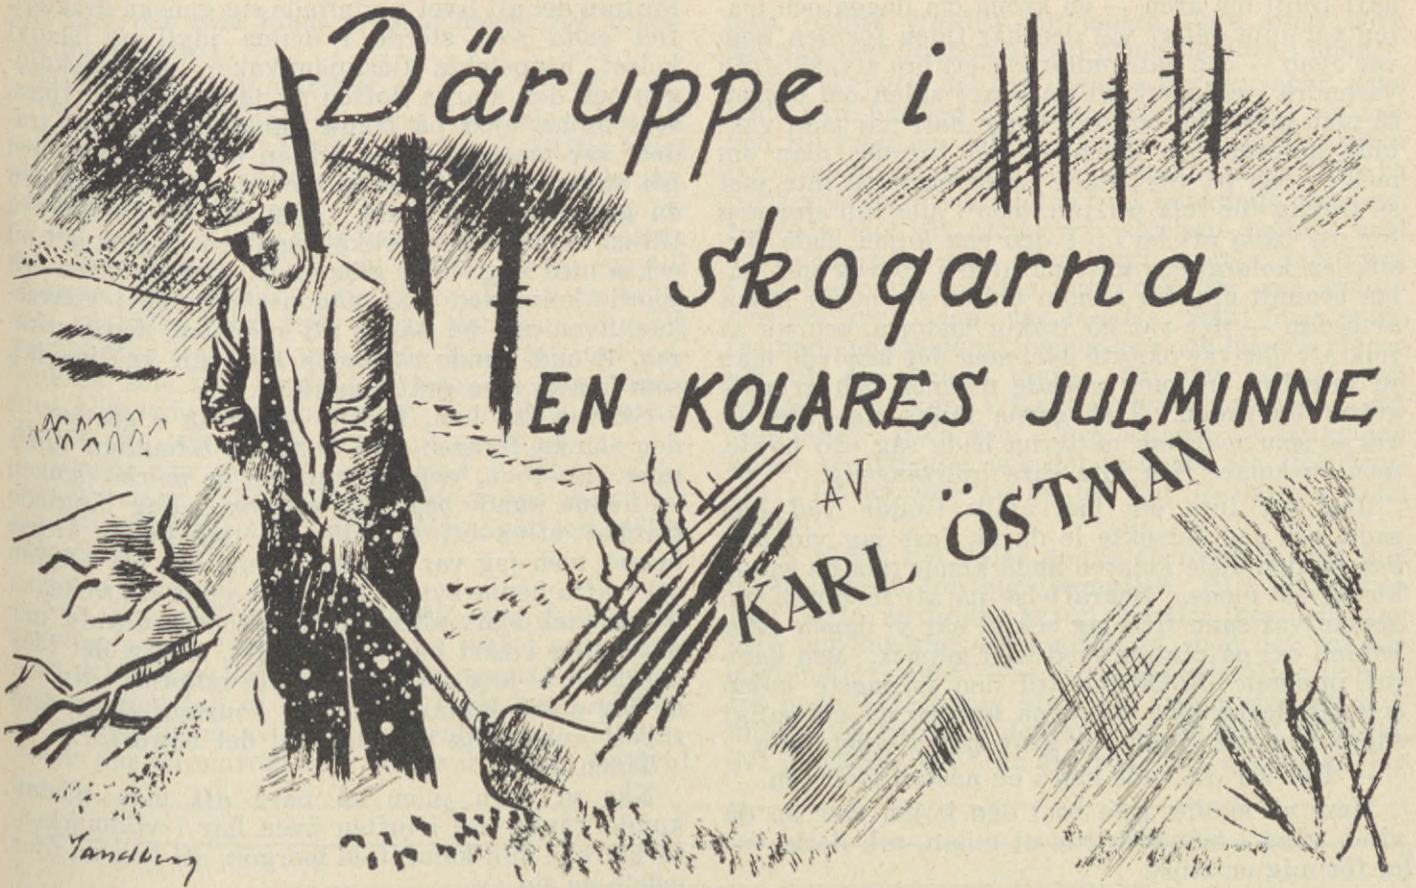 Däruppe i
skogarna
EN KOLARES JULMINNE
AV
KARL ÖSTMAN
Sandberg